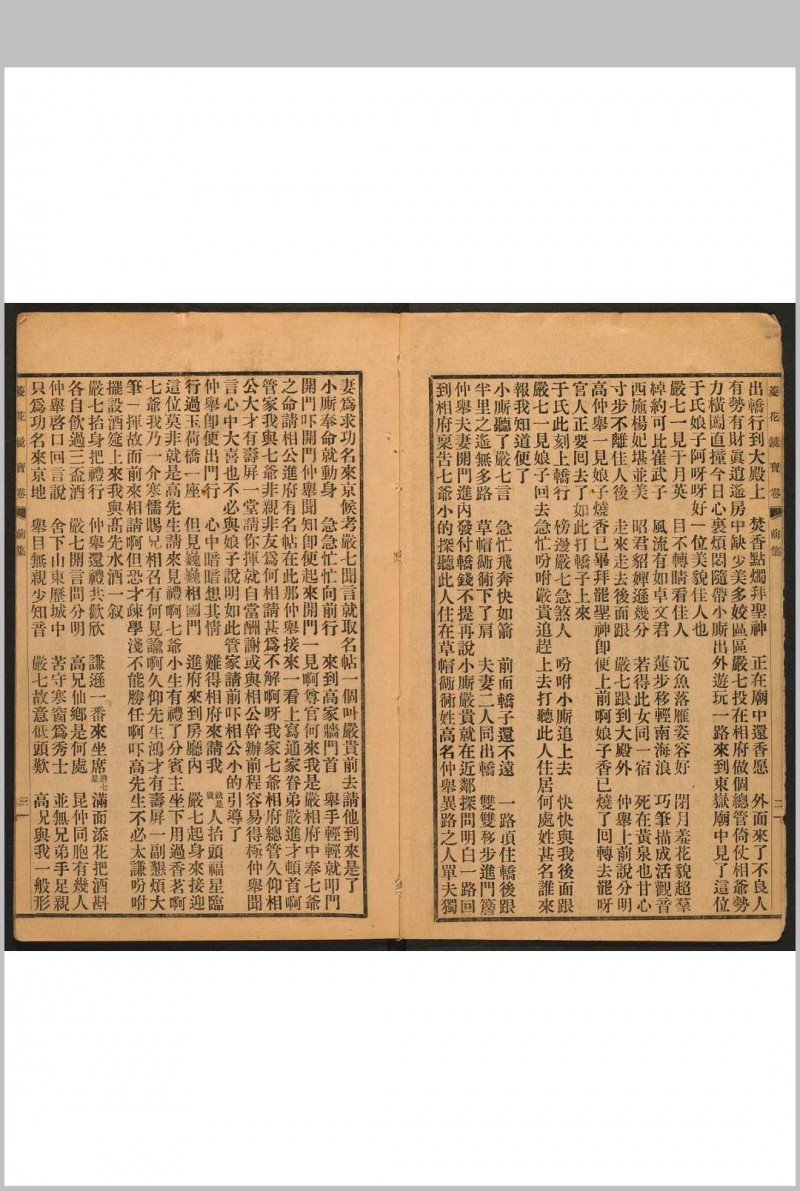 出轎行到大殿上　焚香點燭拜聖神　正在廟中還香愿　外面來了不良人
有勢有財眞逍遙房中缺少美多姣區區嚴七投在相府做個總管倚仗相爺勢
力橫闖直撞今日心裏煩悶隨帶小廝出外遊玩一路來到東嶽廟中見了這位
于氏娘子阿呀呀好一位美貌佳人也
嚴七一見于月英　目不轉睛看佳人　沉魚落雁姿容好　閉月羞花貌超羣
綽約可比崔武子　風流有如卓文君　蓮步移輕南海浪　巧筆描成活觀音
西施楊妃堪並美　昭君貂嬋遜幾分　若得此女同一宿　死在黃泉也甘心
寸步不離佳人後　走來走去後面跟　嚴七跟到大殿外　仲舉上前說分明
高仲舉一見娘子燒香已畢拜罷聖神卽便上前啊娘子香已燒了回轉去罷呀
官人正要回去了如此打轎子上來
于氏此刻上轎行　傍邊嚴七急煞人　吩咐小廝追上去　快快與我後面跟
嚴七一見娘子回去急忙吩咐嚴貴追趕上去打聽此人住居何處姓甚名誰來
報我知道便了
小廝聽了嚴七言　急忙飛奔快如箭　前面轎子還不遠　一路頂住轎後跟
半里之遙無多路　草帽衚衕下了肩　夫妻二人同出轎　雙雙移步進門簷
仲舉夫妻開門進內發付轎錢不提再說小廝嚴貴就在近鄰探問明白一路回
到相府稟告七爺小的探聽此人住在草帽衚衕姓高名仲舉異路之人單夫獨
菱花鏡寶卷　前集　二
妻爲求功名來京候考嚴七聞言就取名帖一個叫嚴貴前去請他到來是了
小廝奉命就動身　急急忙忙向前行　來到高家牆門首　舉手輕輕就叩門
開門吓開門仲舉聞知卽便起來開門一見啊尊官何來我是嚴相府中奉七爺
之命請相公進府有名帖在此那仲舉接來一看上寫通家眷弟嚴進才頓首啊
管家我與七爺非親非友爲何相請甚爲不解啊呀我家七爺相府總管久仰相
公大才有壽屏一堂請你揮就自當酬謝或與相公幹辦前程容易得極仲舉聞
言心中大喜也不必與娘子說明如此管家請前吓相公小的引導了
仲舉卽便出門行　心中暗暗想其情　難得相府來請我　就是我人抬頭福星臨
行過玉荷橋一座　但見巍巍相國門　進府來到房廳內　嚴七起身來接迎
這位莫非就是高先生請來見禮啊七爺小生有禮了分賓主坐下用過香茗啊
七爺我乃一介寒儒賜兄相召有何見諭啊久仰先生鴻才有壽屏一副懇煩大
筆一揮故而前來相請啊但恐才疎學淺不能勝任啊吓高先生不必太謙吩咐
擺設酒筵上來我與高先水酒一叙
嚴七抬身把禮行　仲舉還禮共歡欣　謙遜一番來坐席　滿面添花把酒斟
各自飲過三盃酒　嚴七開言問分明　高兄仙鄉是何處　昆仲同胞有幾人
仲舉啓口回言說　舍下山東歷城中　苦守寒窗爲秀士　並無兄弟手足親
只爲功名來京地　舉目無親少知音　嚴七故意低頭歎　高兄與我一般形
菱花鏡寶卷　前集　三